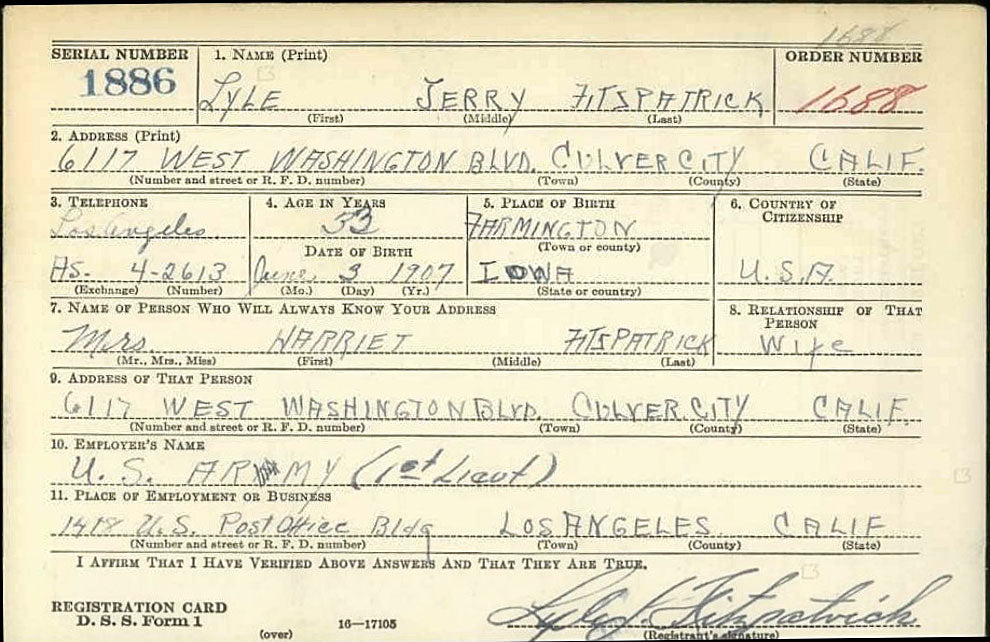 1688
SERIAL NUMBER 1. NAME (Print) ORDER NUMBER
1886 LYLE JERRY FITSPATRICK 1688
(First) (Middle) (Last)
2. ADDRESS (Print)
6117 WEST WASHINGTON BLVD. CULVER CITY CALIF.
(Number and street or R. F. D. number) (Town) (County) (State)
3. TELEPHONE 4. AGE IN YEARS 5. PLACE OF BIRTH 6. COUNTRY OF CITIZENSHIP
Los Angeles 33 FARMINGTON
DATE OF BIRTH (Town or county)
AS- 4-2613 June 3 1907 IOWA U.S.A.
(Exchange) (Number) (Mo.) (Day) (Yr.) (State or country)
7. NAME OF PERSON WHO WILL ALWAYS KNOW YOUR ADDRESS 8. RELATIONSHIP OF THAT PERSON
Mrs. HARRIET FITSPATRICK Wife
(Mr., Mrs., Miss) (First) (Middle) (Last)
9. ADDRESS OF THAT PERSON
6117 WEST WASHINGTON BLVD. CULVER CITY CALIF.
(Number and street or R. F. D. number) (Town) (County) (State)
10. EMPLOYER'S NAME
U. S. ARMY (1st Lieut)
11. PLACE OF EMPLOYMENT OR BUSINESS
U.S. Post Office Bldg LOS ANGELES CALIF
(Number and street or R. F. D. number) (Town) (County) (State)
I AFFIRM THAT I HAVE VERIFIED ABOVE ANSWERS AND THAT THEY ARE TRUE.
REGISTRATION CARD
D. S. S. Form 1 Lyle J Fitzpatrick
(over) 16-17105 (Registrant's signature)